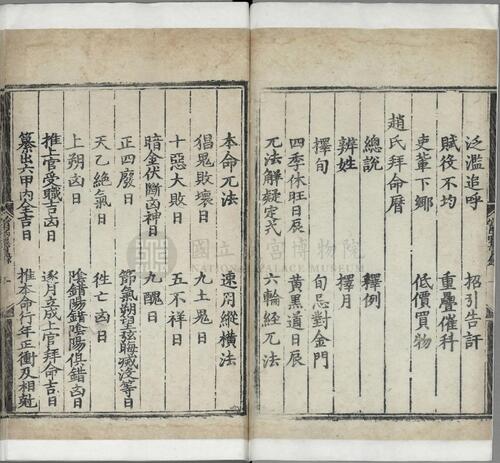 泛濫追呼 招引告訐
賦役不均 重疊催科
吏軰下鄉 低價買物
趙氏拜命曆
總說 釋例
辨姓 擇月
擇旬 旬忌對金門
四季休旺日辰 黃黑道日辰
兀法解疑定式 六輪經兀法
本命兀法 速閱縱橫法
猖鬼敗壞日 九土鬼日
十惡大敗日 五不祥日
暗金伏斷凶神日 九醜日
正四廢日 節氣朔望弦晦滅没等日
天乙絶氣日 徃亡凶日
上朔凶日 陰錯陽錯陰陽俱錯凶日
推上官受職吉凶日 逐月立成上官拜命吉日
纂出六甲内全吉日 推本命行年正衝及相尅
國立故宮博物院